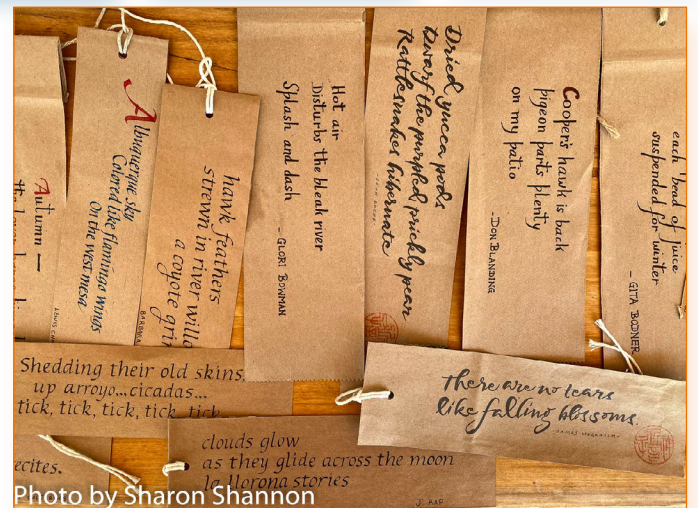 Autumn —
Albuquerque sky
Colored like flamingo wings
On the west mesa
hawk feathers
strewn in river
a coyote
Hot air
Disturbs the bleak river
Splash and dash
- GLORY BOWMAN
Dried yucca pods
Dwarf the purpled, prickly pear
Rattlesnakes hibernate
Cooper's hawk is back
pigeon parts plenty
on my patio
-DON BLANDING
each bead of juice
suspended for winter
- GITA BODNER
Shedding their old skins,
up arroyo...cicadas...
tick, tick, tick, tick, tick
There are no tears
like falling blossoms.
clouds glow
as they glide across the moon
la llorona stories
ecites.
Photo by Sharon Shannon